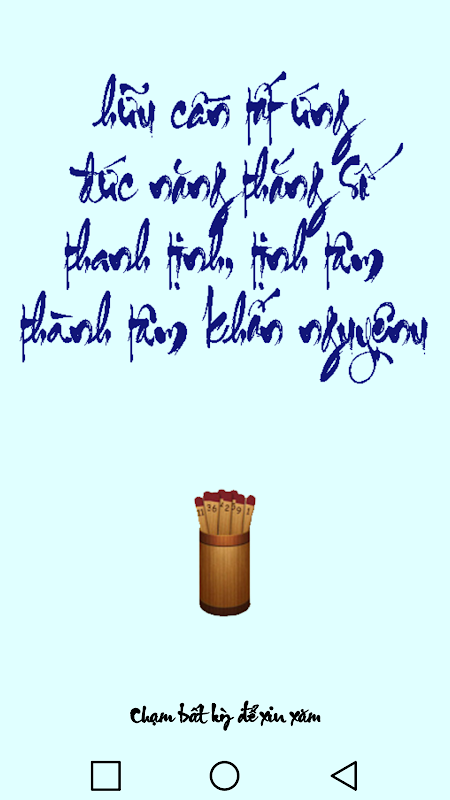 hữu cầu tất ứng
đức năng thắng số
thanh tịnh, tịnh tâm
thành tâm khấn nguyện
36
Chạm bất kỳ để xin xăm